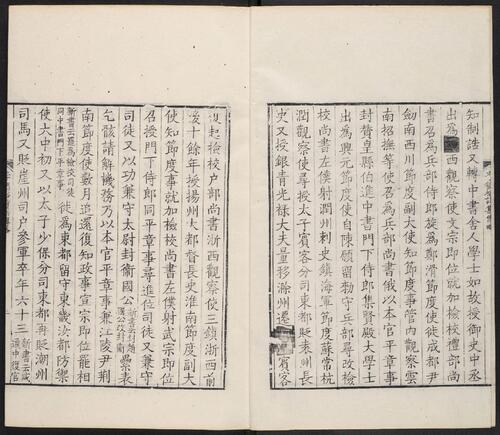 知制誥又轉中書舍人學士如故授御史中丞
出為 西觀察使文宗即位就加檢校禮部尚
書召為兵部侍郎旋為鄭滑節度使徙成都尹
劔南西川節度副大使知節度事管内觀察雲
南招撫等使召為兵部尚書俄以本官平章事
封贊皇縣伯進中書門下侍郎集賢殿大學士
出為興元節度使自陳願留勅守兵部尋改檢
校尚書左僕射潤州刺史鎮海軍節度蘇常杭
潤觀察使尋授太子賓客分司東都貶袁州長
史又授銀青光祿大夫量移滁州遷 賓客
復起檢校户部尚書浙西觀察使三鎮浙西前
後十餘年授揚州大都督長史淮南節度副大
使知節度事就加檢校尚書左僕射武宗即位
召授門下侍郎同平章事尋進位司徒又兼守
司徒又以功兼守太尉封衛國公 累表
乞骸請解機務乃以本官平章事兼江陵尹荆
南節度使數月追還復知政事宣宗即位罷相
新書云罷為檢校司徒同中書門下平章事 徙為東都留守東畿汝都防禦
使大中初又以太子少保分司東都再貶潮州
司馬又貶崖州司户參軍卒年六十三